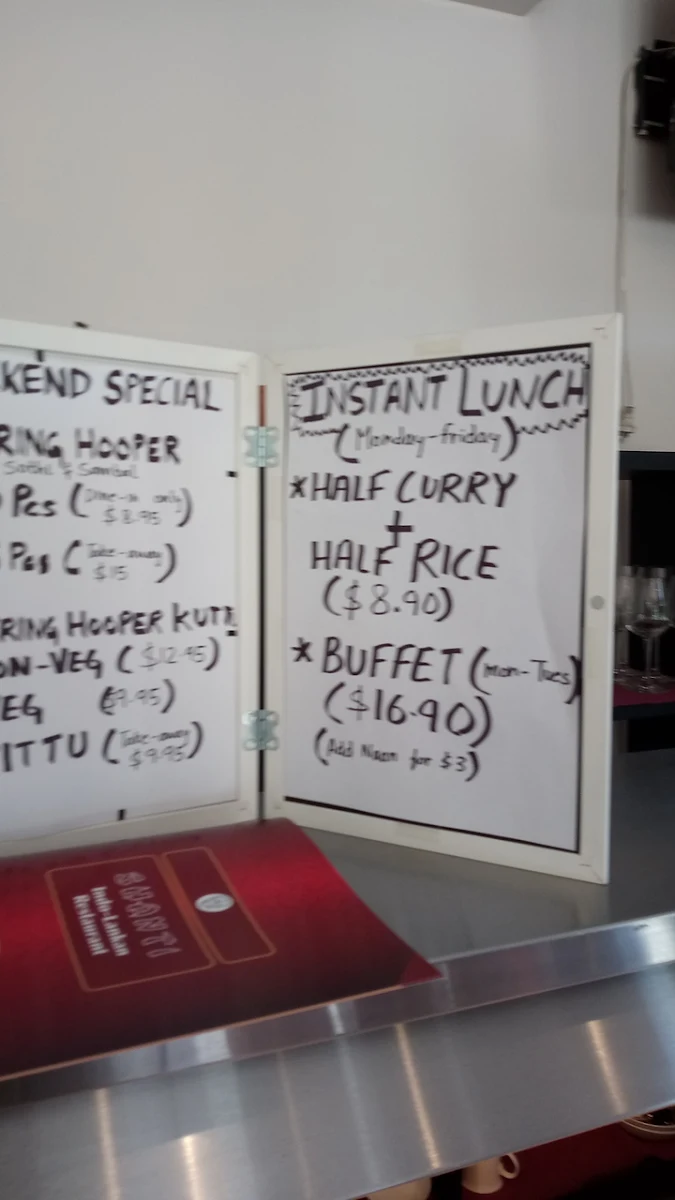 KEND SPECIAL
RING HOOPER
Sothi & Sambol
Pcs (Dine-in only
$8.95)
Pcs (Take-away
$15)
RING HOOPER KUTTU
ON-VEG ($12.95)
EG ($9.95)
ITTU (Take-away
$9.95)
INSTANT LUNCH
(Monday-friday)
*HALF CURRY
+
HALF RICE
($8.90)
*BUFFET (Mon-Tues)
($16.90)
(Add Naan for $3)
SHANTI
Indo-Lankan
Restaurant